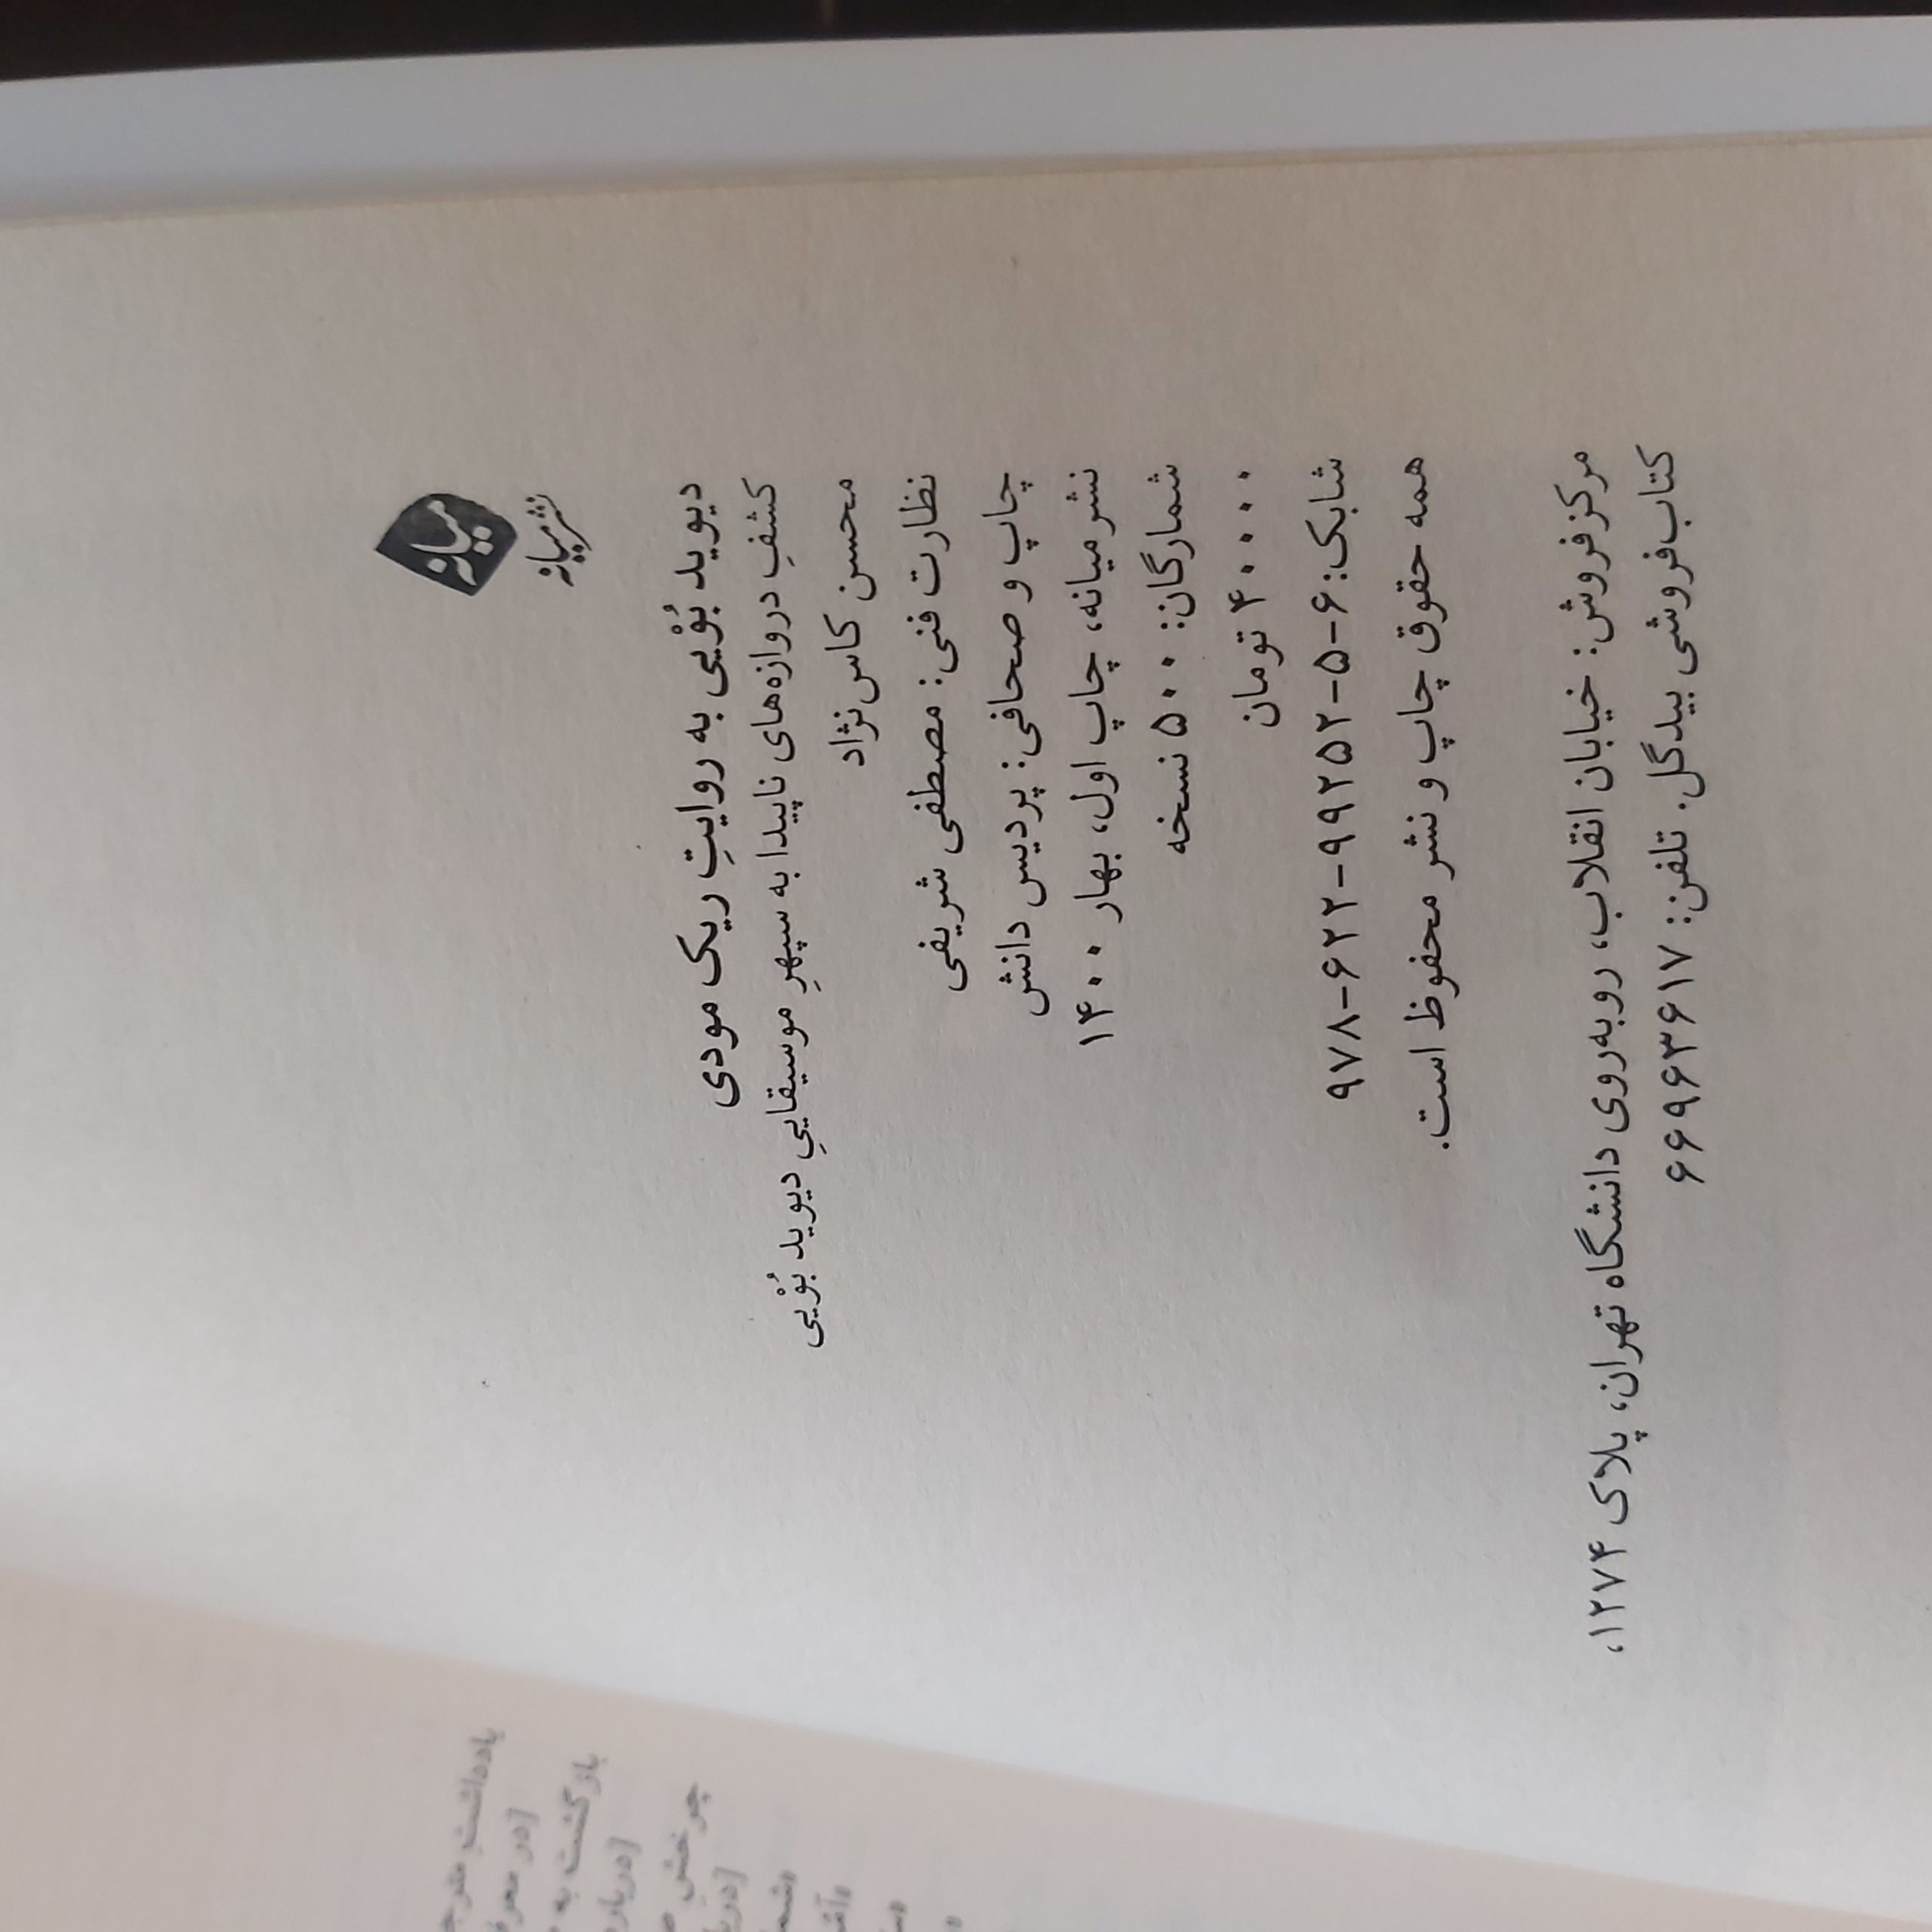 میانه
نشر میانه
دیوید بُوْیی به روایتِ ریک مودی
کشفِ دروازه‌های ناپیدا به سپهرِ موسیقاییِ دیوید بُوْیی
محسن کاس‌نژاد
نظارت فنی: مصطفی شریفی
چاپ و صحافی: پردیس دانش
نشر میانه، چاپ اول، بهار ۱۴۰۰
شمارگان: ۵۰۰ نسخه
۴۰۰۰۰ تومان
شابک: ۶-۵-۹۹۲۵۲-۶۲۲-۹۷۸
همه حقوق چاپ و نشر محفوظ است.
مرکز فروش: خیابان انقلاب، روبه‌روی دانشگاه تهران، پلاک ۱۲۷۴،
کتاب‌فروشی بیدگل. تلفن: ۶۶۹۶۳۶۱۷
یادداشت
بازگشت به
چرخش